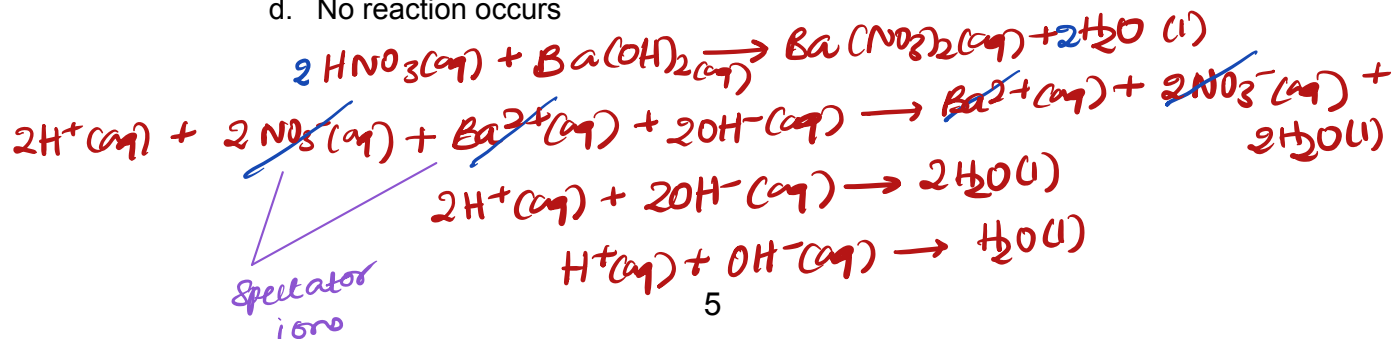 d. No reaction occurs
2 HNO3(aq) + Ba(OH)2(aq) → Ba(NO3)2(aq) + 2H2O (l)
2H+(aq) + 2NO3-(aq) + Ba2+(aq) + 2OH-(aq) → Ba2+(aq) + 2NO3-(aq) +
2H2O(l)
2H+(aq) + 2OH-(aq) → 2H2O(l)
H+(aq) + OH-(aq) → H2O(l)
Spectator
ions
5